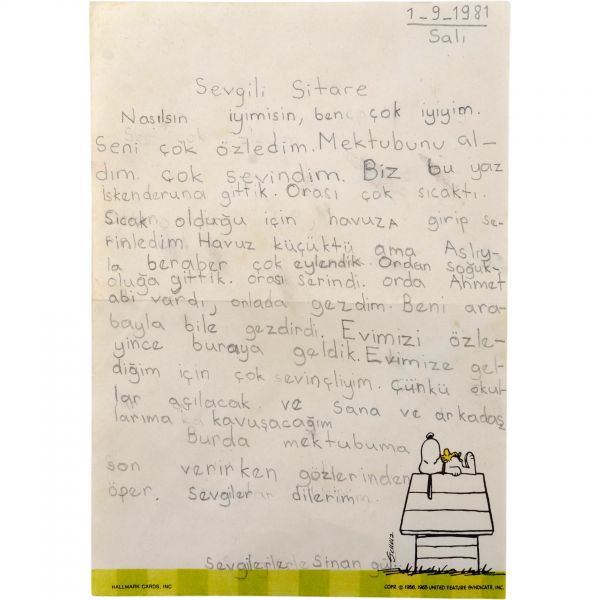 1_9_1981
Salı
Sevgili Sitare
Nasılsın iyimisin, ben çok iyiyim.
Seni çok özledim. Mektubunu al-
dım çok sevindim. Biz bu yaz
İskenderuna gittik. Orası çok sıcaktı.
Sıcak olduğu için havuza girip se-
rinledim. Havuz küçüktü ama Aslıy-
la beraber çok eylendik. Ordan soğuk-
oluğa gittik. orası serindi. orda Ahmet
abi vardı, onlada gezdim. Beni ara-
bayla bile gezdirdi. Evimizi özle-
yince buraya geldik. Evimize gel-
diğim için çok sevinçliyim. çünkü okul-
lar açılacak ve Sana ve arkadaş
larıma kavuşacağım
Burda mektubuma
son verirken gözlerinden
öper. sevgiler dilerim.
Sevgilerle Sinan
Schulz
HALLMARK CARDS, INC
COPR. © 1958, 1965 UNITED FEATURE SYNDICATE, INC.